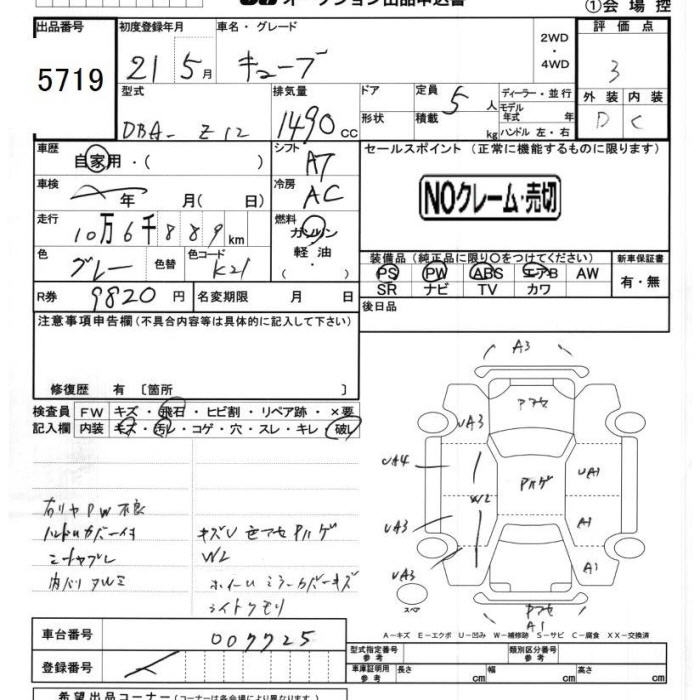 オークション出品申込書
①会場控
出品番号
5719
初度登録年月
21 5月
車名・グレード
キューブ
2WD
・
4WD
評価点
3
型式
DBA- Z12
排気量
1490 CC
ドア
定員 5 人
形状
積載 kg
ディーラー・並行
モデル年式 年
ハンドル 左・右
外装 内装
D C
車歴
自家用・( )
シフト
AT
セールスポイント (正常に機能するものに限ります)
NOクレーム・売切
車検
年 月( 日)
冷房
AC
走行
10万6千889km
燃料
ガソリン
軽油
・( )
色
グレー
色替
色コード
K21
装備品 (純正品に限り〇をつけてください)
新車保証書
PS PW ABS エアB AW
SR ナビ TV カワ
有・無
R券 9820円
名変期限 月 日
後日品
注意事項申告欄 (不具合内容等は具体的に記入して下さい)
修復歴 有 〔箇所 〕
検査員
記入欄
FW キズ・飛石・ヒビ割・リペア跡・×要
内装 キズ・汚レ・コゲ・穴・スレ・キレ・破レ
右リヤPW不良
ハンドルカバー付
内バリ
キズU 色アセ Pハゲ
W2
ホイールミラーカバーキズ
ライトクモリ
A3
アセ
UA3
UA4
W2
Pハゲ
UA1
UA3
A1
UA3
A1
スペア
アセ
A1
A-キズ E-エクボ U-凹み W-補修跡 S-サビ C-腐食 XX-交換済
車台番号 007725
登録番号
型式指定番号
参考
類別区分番号
参考
車庫証明用
参考
長さ cm 幅 cm 高さ cm
希望出品コーナー (コーナーは各会場により異なります)